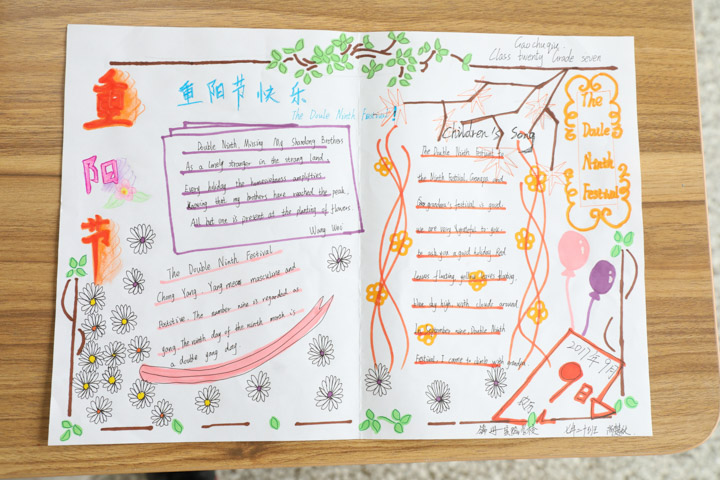 Gaochuqiu.
Class twenty Grade seven
重
阳
节
重阳节快乐
The Doule Ninth Festival!
Double Ninth, Missing My Shandong Brothers
As a lonely stranger in the strang land
Every holiday the homesickness amplifties
Knowing that my brothers have reached the peak,
All but one is present at the planting of flowers
Wang Wei
The Double Ninth Festival
Chong Yang Yang mean masculine and
Positive. The number nine is regarded as
yang. The ninth day of the ninth month is
a double yang day
Children's Song
The Double Ninth Festival is
the Ninth Festival Grandpa and
Grandma's festival is good.
we are very to you.
to ask for a good holiday Red
leaves yellow
blue sky high with clouds around
In September nine Double Ninth
Festival, I came to climb with grandpa
The
Doule
Ninth
Festival
2017年9月
9日
七年二十班